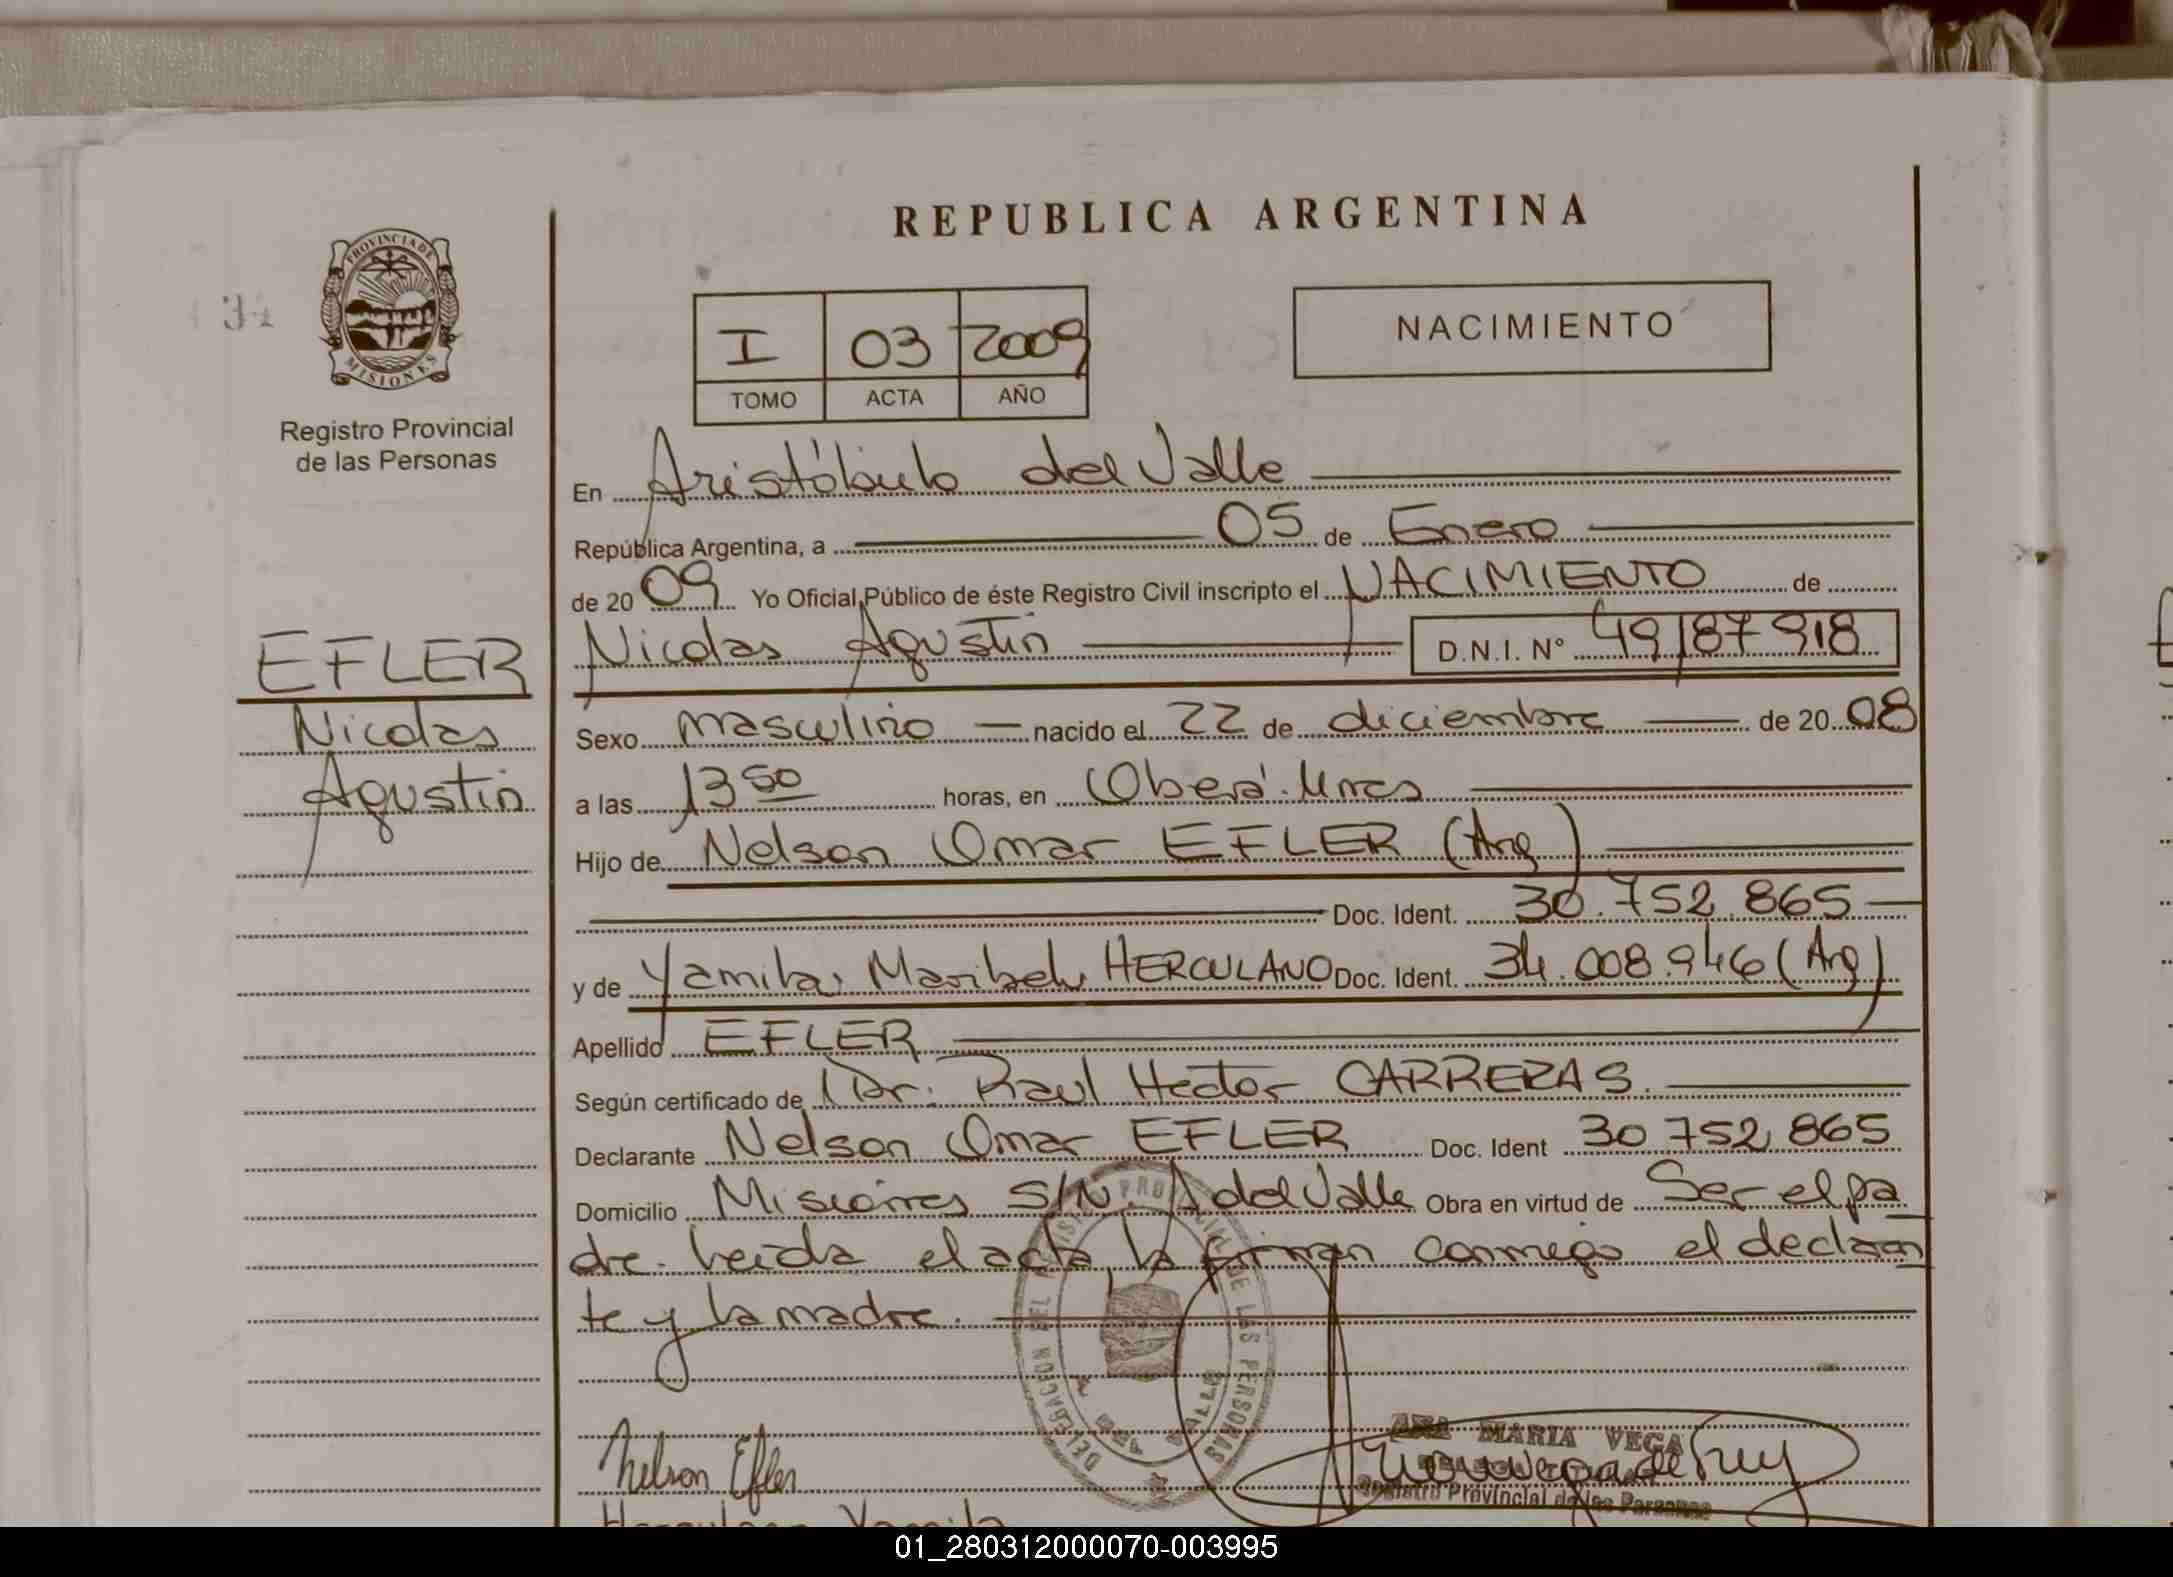 REPUBLICA ARGENTINA
PROVINCIA DE MISIONES
Registro Provincial
de las Personas
I 03 2009
TOMO ACTA AÑO
NACIMIENTO
En Aristóbulo del Valle
República Argentina, a 05 de Enero
de 20 09 Yo Oficial Público de éste Registro Civil inscripto el NACIMIENTO de
EFLER
Nicolas
Agustin
Nicolas Agustin D.N.I. Nº 49187918
Sexo masculino nacido el 22 de diciembre de 20 08
a las 13 50 horas, en Oberá. Mnes
Hijo de Nelson Omar EFLER (Arg)
Doc. Ident. 30.752.865
y de Yamila Maribel HERCULANO Doc. Ident. 34.008.946 (Arg)
Apellido EFLER
Según certificado de Dr. Raul Hector CARRERAS.
Declarante Nelson Omar EFLER Doc. Ident 30.752.865
Domicilio Misiones S/N. A del Valle Obra en virtud de Ser el pa
dre. Leida el acta, la firman conmigo el declaran
te y la madre.
DELEGACION DEL REGISTRO PROVINCIAL DE LAS PERSONAS
Nelson Efler
ANA MARIA VEGA
Registro Provincial de las Personas
01_280312000070-003995